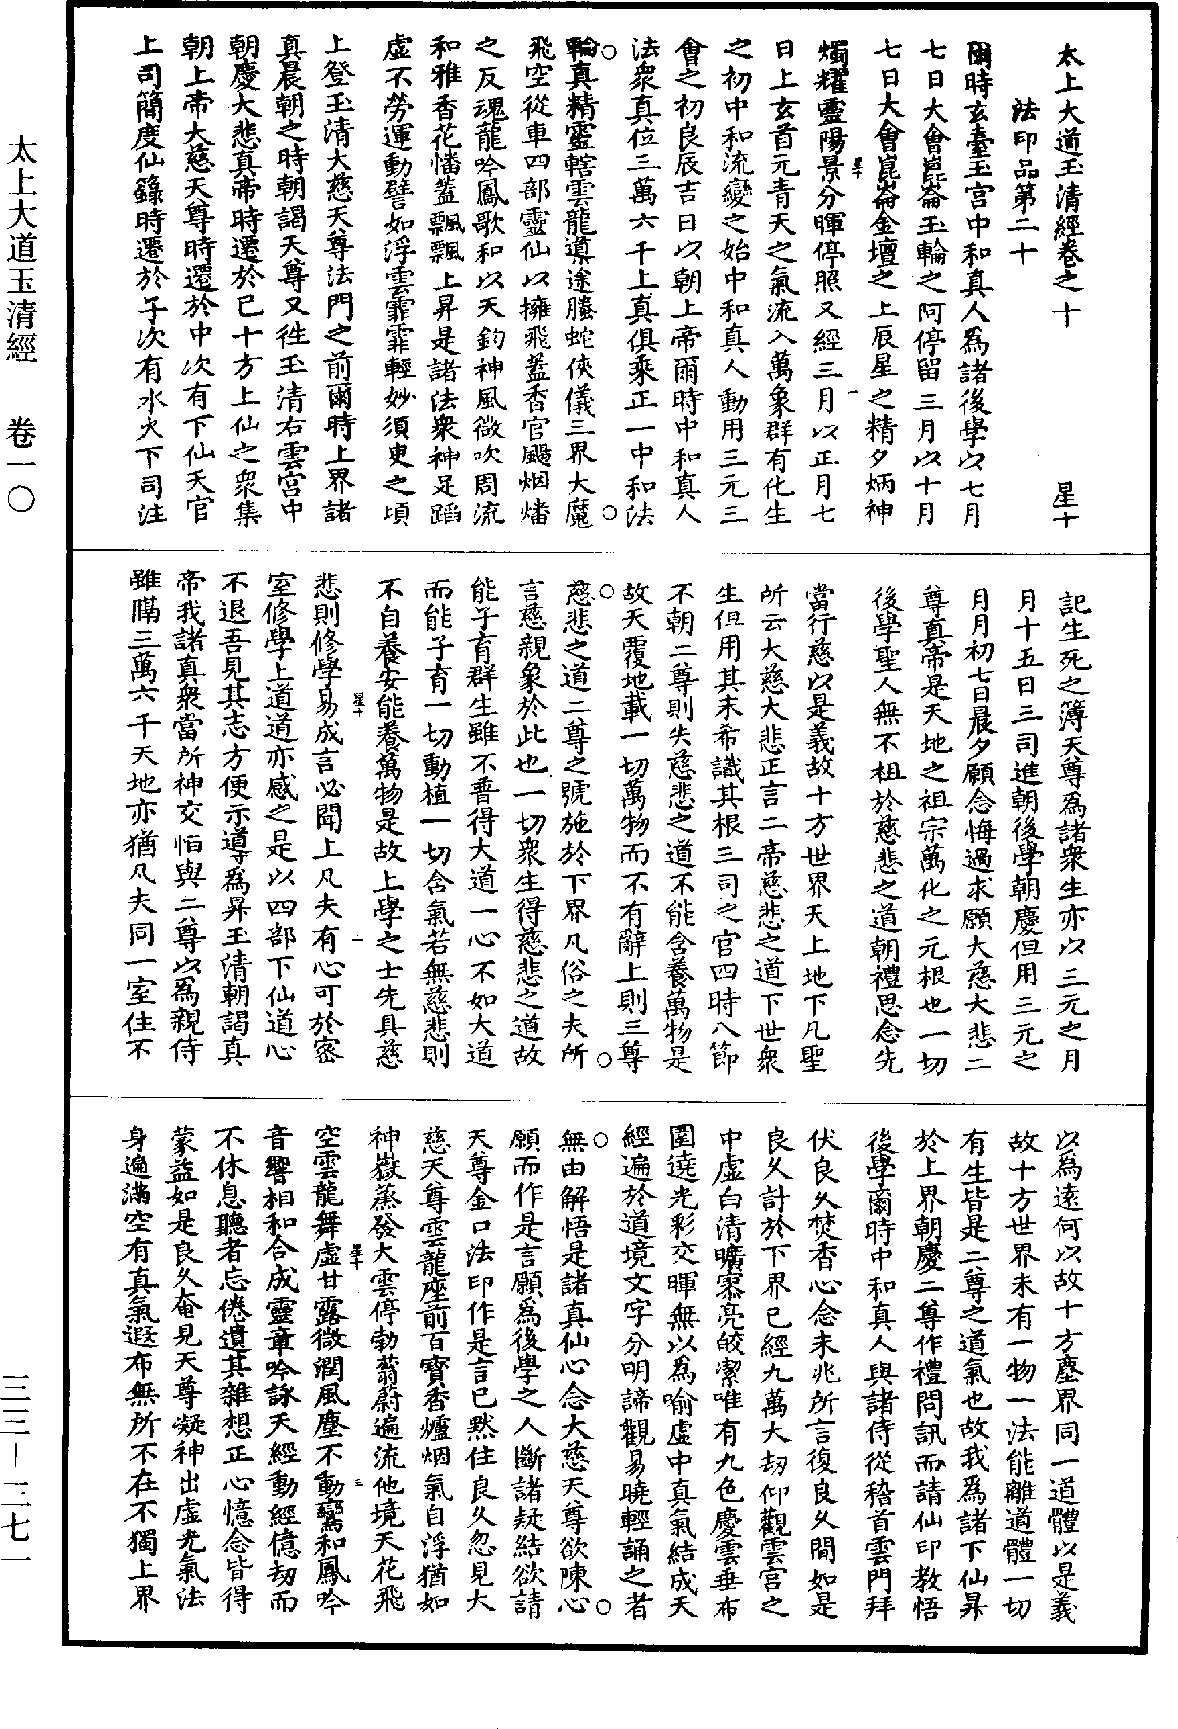 太上大道玉清經卷之十　星十
法印品第二十
爾時玄臺玉宫中和真人爲諸後學以七月
七日大會崑崙玉輪之阿停留三月以十月
七日大會崑崙金壇之上辰星之精夕炳神
燭耀靈陽景分暉停照又經三月以正月七
日上玄首元青天之氣流入萬象群有化生
之初中和流變之始中和真人動用三元三
會之初良辰吉日以朝上帝爾時中和真人
法衆真位三萬六千上真俱乘正一中和法
輪真精靈轄雲龍導途騰蛇俠儀三界大魔
飛空從車四部靈仙以擁飛蓋香官颺烟燔
之反魂龍吟鳳歌和以天鈞神風微吹周流
和雅香花幡蓋飄飄上昇是諸法衆神足蹈
虛不勞運動譬如浮雲霏霏輕妙須臾之頃
上登玉清大慈天尊法門之前爾時上界諸
真晨朝之時朝謁天尊又徃玉清右雲宮中
朝慶大悲真帝時還於巳十方上仙之衆集
朝上帝大慈天尊時還於中次有下仙天官
上司簡度仙籙時還於午次有水火下司注
記生死之簿天尊爲諸衆生亦以三元之月
月十五日三司進朝後學朝慶但用三元之
月月初七日晨夕願念悔過求願大慈大悲二
尊真帝是天地之祖宗萬化之元根也一切
後學聖人無不祖於慈悲之道朝禮思念先
當行慈以是義故十方世界天上地下凡聖
所云大慈大悲正言二帝慈悲之道下世衆
生但用其末希識其根三司之官四時八節
不朝二尊則失慈悲之道不能含養萬物是
故天覆地載一切萬物而不有辭上則三尊
慈悲之道二尊之號施於下界凡俗之夫所
言慈親象於此也一切衆生得慈悲之道故
能子育群生雖不普得大道一心不如大道
而能子育一切動植一切含氣若無慈悲則
不自養安能養萬物是故上學之士先具慈
悲則修學易成言必聞上凡夫有心可於密
室修學上道道亦感之是以四部下仙道心
不退吾見其志方便示道導爲昇玉清朝謁真
帝我諸真衆當所神交怕與二尊以爲親侍
雖隔三萬六千天地亦猶凡夫同一室住不
以為遠何以故十方塵界同一道體以是義
故十方世界未有一物一法能離道體一切
有生皆是二尊之道氣也故我爲諸下仙昇
於上界朝慶二尊作禮問訊而請仙印教悟
後學爾時中和真人與諸侍從稽首雲門拜
伏良久焚香心念未兆所言復良久間如是
良久計於下界已經九萬大劫仰觀雲宮之
中虛白清曠寥亮皎潔唯有九色慶雲垂布
圍遶光彩交暉無以為喻虛中真氣結成天
經遍於道境文字分明諦觀易曉輕誦之者
無由解悟是諸真仙心念大慈天尊欲陳心
願而作是言願爲後學之人斷諸疑結欲請
天尊金口法印作是言已黙住良久忽見大
慈天尊雲龍座前百寶香爐烟氣自浮猶如
神嶽蒸發大雲停勃蓊蔚遍流他境天花飛
空雲龍舞虛甘露微潤風塵不動鸞和鳳吟
音響相和合成靈章吟詠天經動經億劫而
不休息聽者忘倦遺其雜想正心憶念皆得
蒙益如是良久奄見天尊凝神出虛光氣法
身遍滿空有真氣遐布無所不在不獨上界
太上大道玉清經　卷一〇
三三—三七一